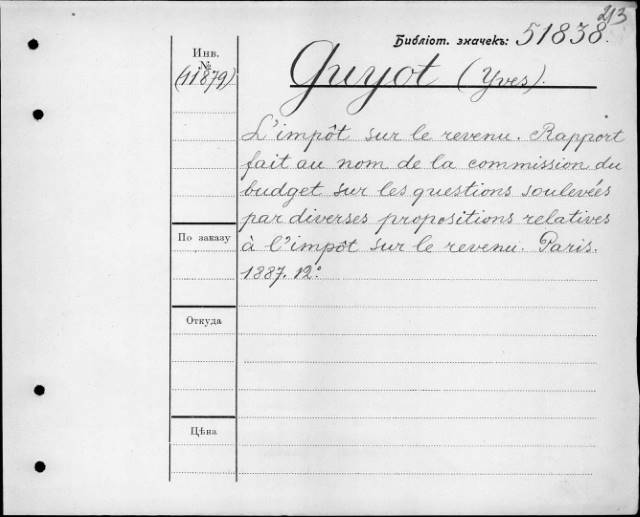 213
Библіот. значекъ: 51838.
Инв.
№
(11879)
Guyot (Yves).
L'impôt sur le revenu. Rapport
fait au nom de la commission du
budget sur les questions soulevées
par diverses propositions relatives
à l'impôt sur le revenu. Paris.
1887. 12°
По заказу
Откуда
Цѣна